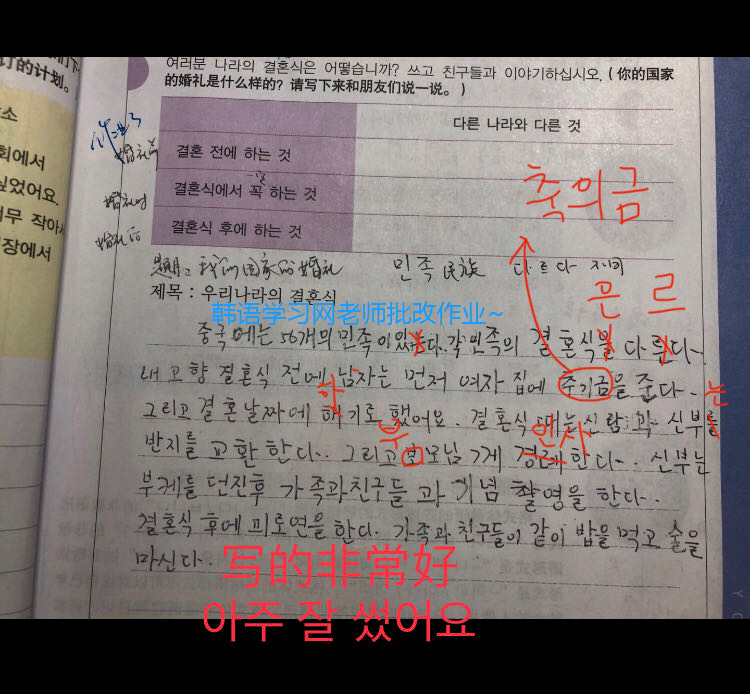 订的计划。
여러분 나라의 결혼식은 어떻습니까? 쓰고 친구들과 이야기하십시오. (你的国家
的婚礼是什么样的? 请写下来和朋友们说一说。)
다른 나라와 다른 것
결혼 전에 하는 것
결혼식에서 꼭 하는 것
결혼식 후에 하는 것
회에서
싶었어요.
너무 작아
장에서
축의금
题目: 我们国家的婚礼 민족 民族 다르다
제목 : 우리나라의 결혼식
은 르
韩语学习网老师批改作业~
중국에는 56개의 민족이 있는다. 각 민족의 결혼식을 다른다.
내 고향 결혼식 전에 남자는 먼저 여자 집에 추기금을 준다. 는
하
그리고 결혼날짜에 해기로 했어요. 결혼식 때는 신랑과 신부를
부 인사
반지를 교환한다. 그리고 모님에게 경례한다. 신부는
부케를 던진후 가족과친구들과 기념 촬영을 한다.
결혼식 후에 피로연을 한다. 가족과 친구들이 같이 밥을 먹고 술을
마신다.
写的非常好
아주 잘 썼어요